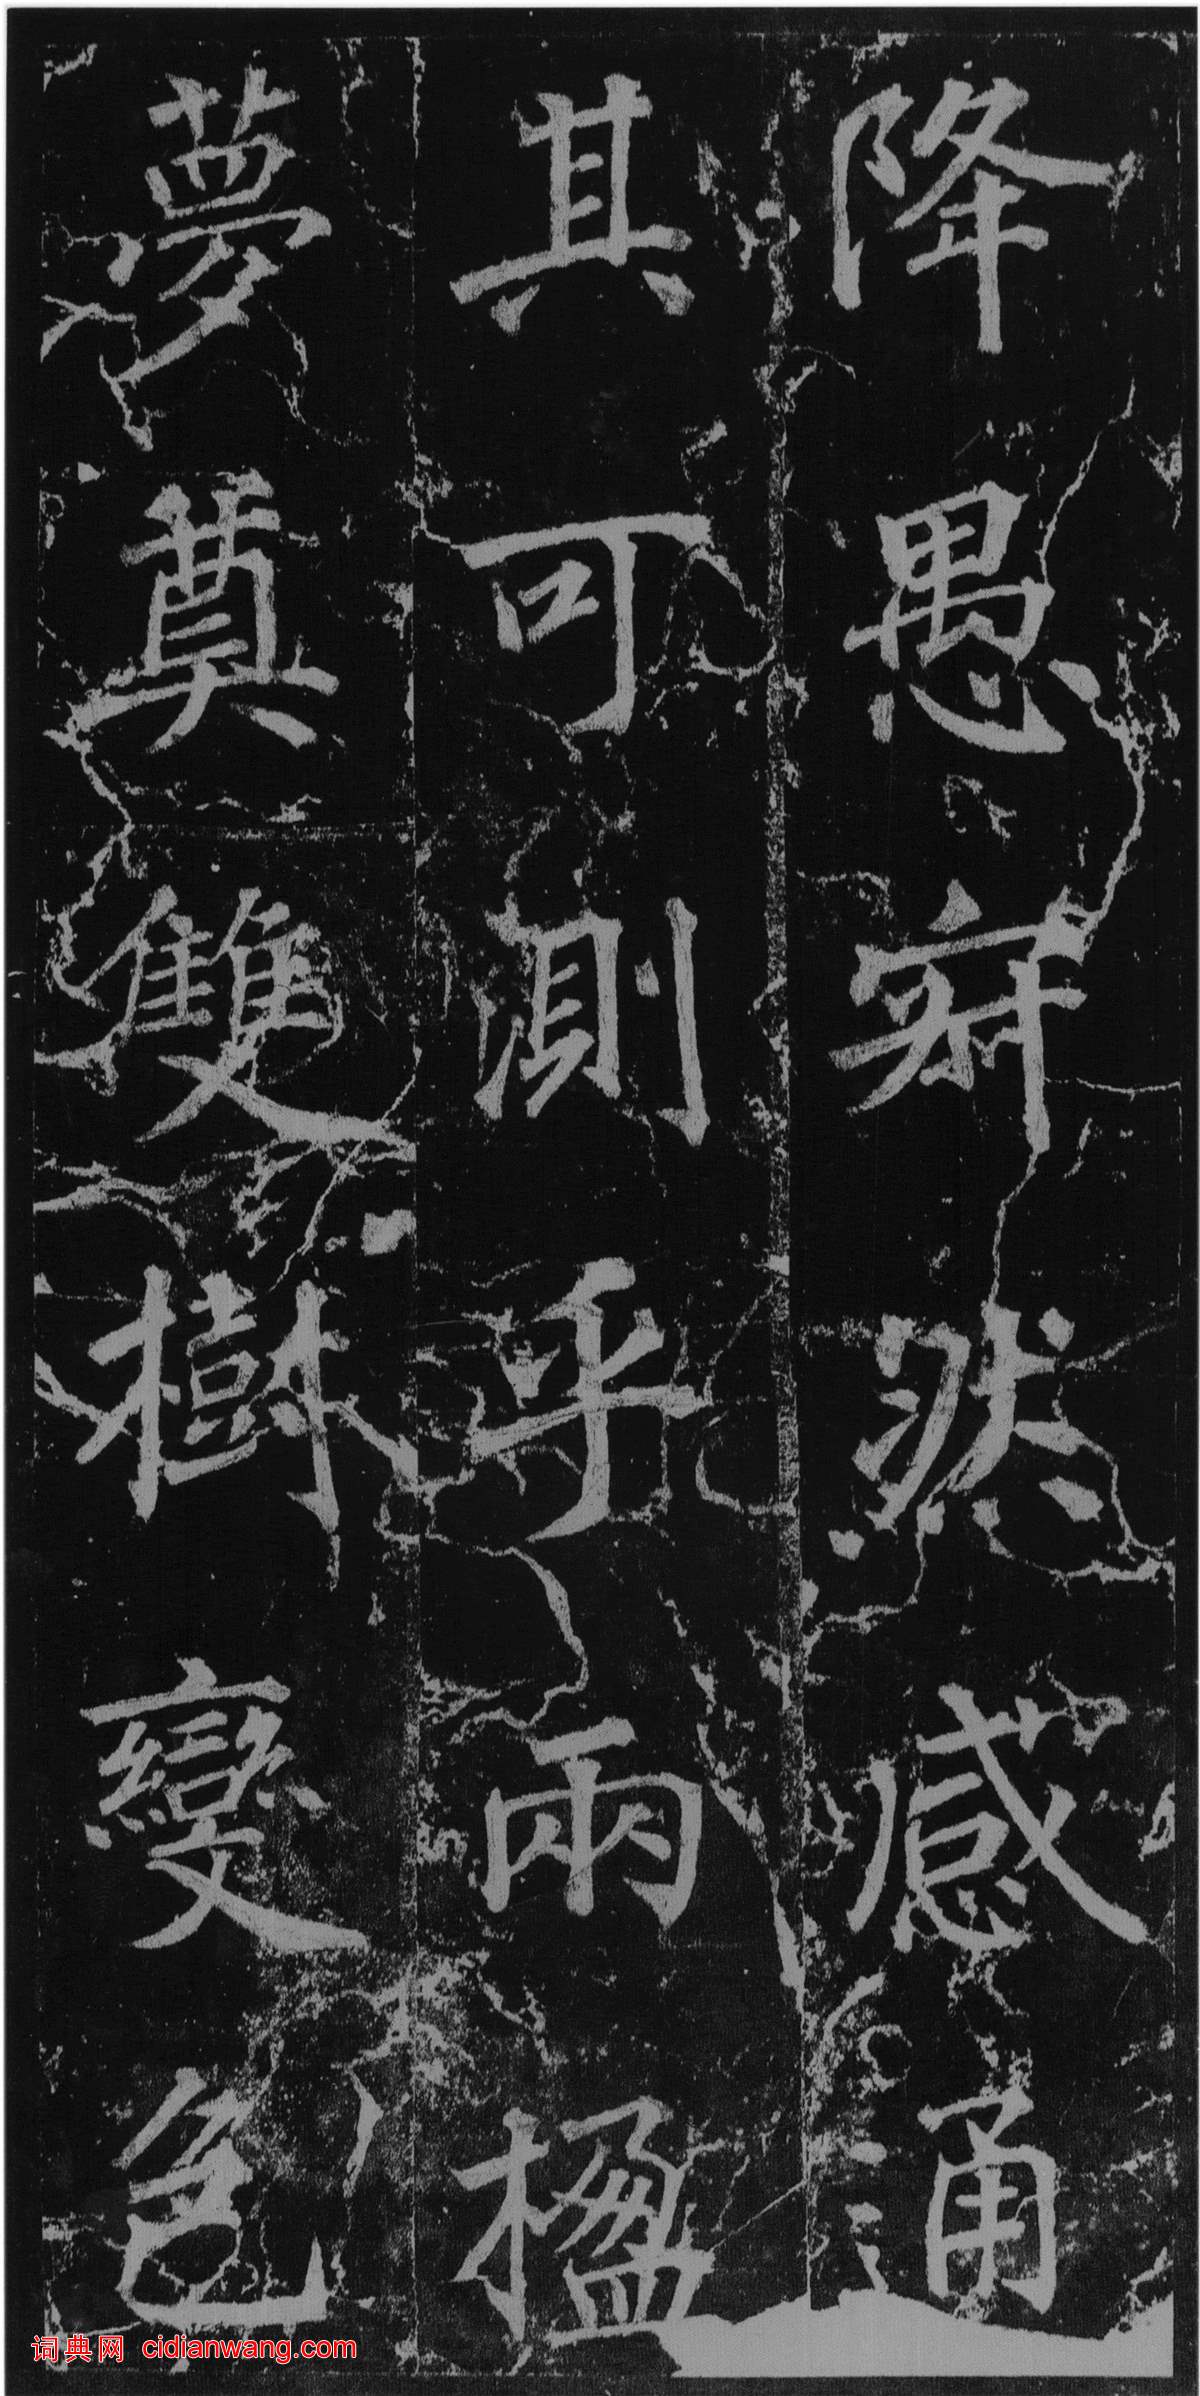 降愚寂然感通
其可測乎兩楹
夢奠雙樹變色
词典网 cidianwang.com